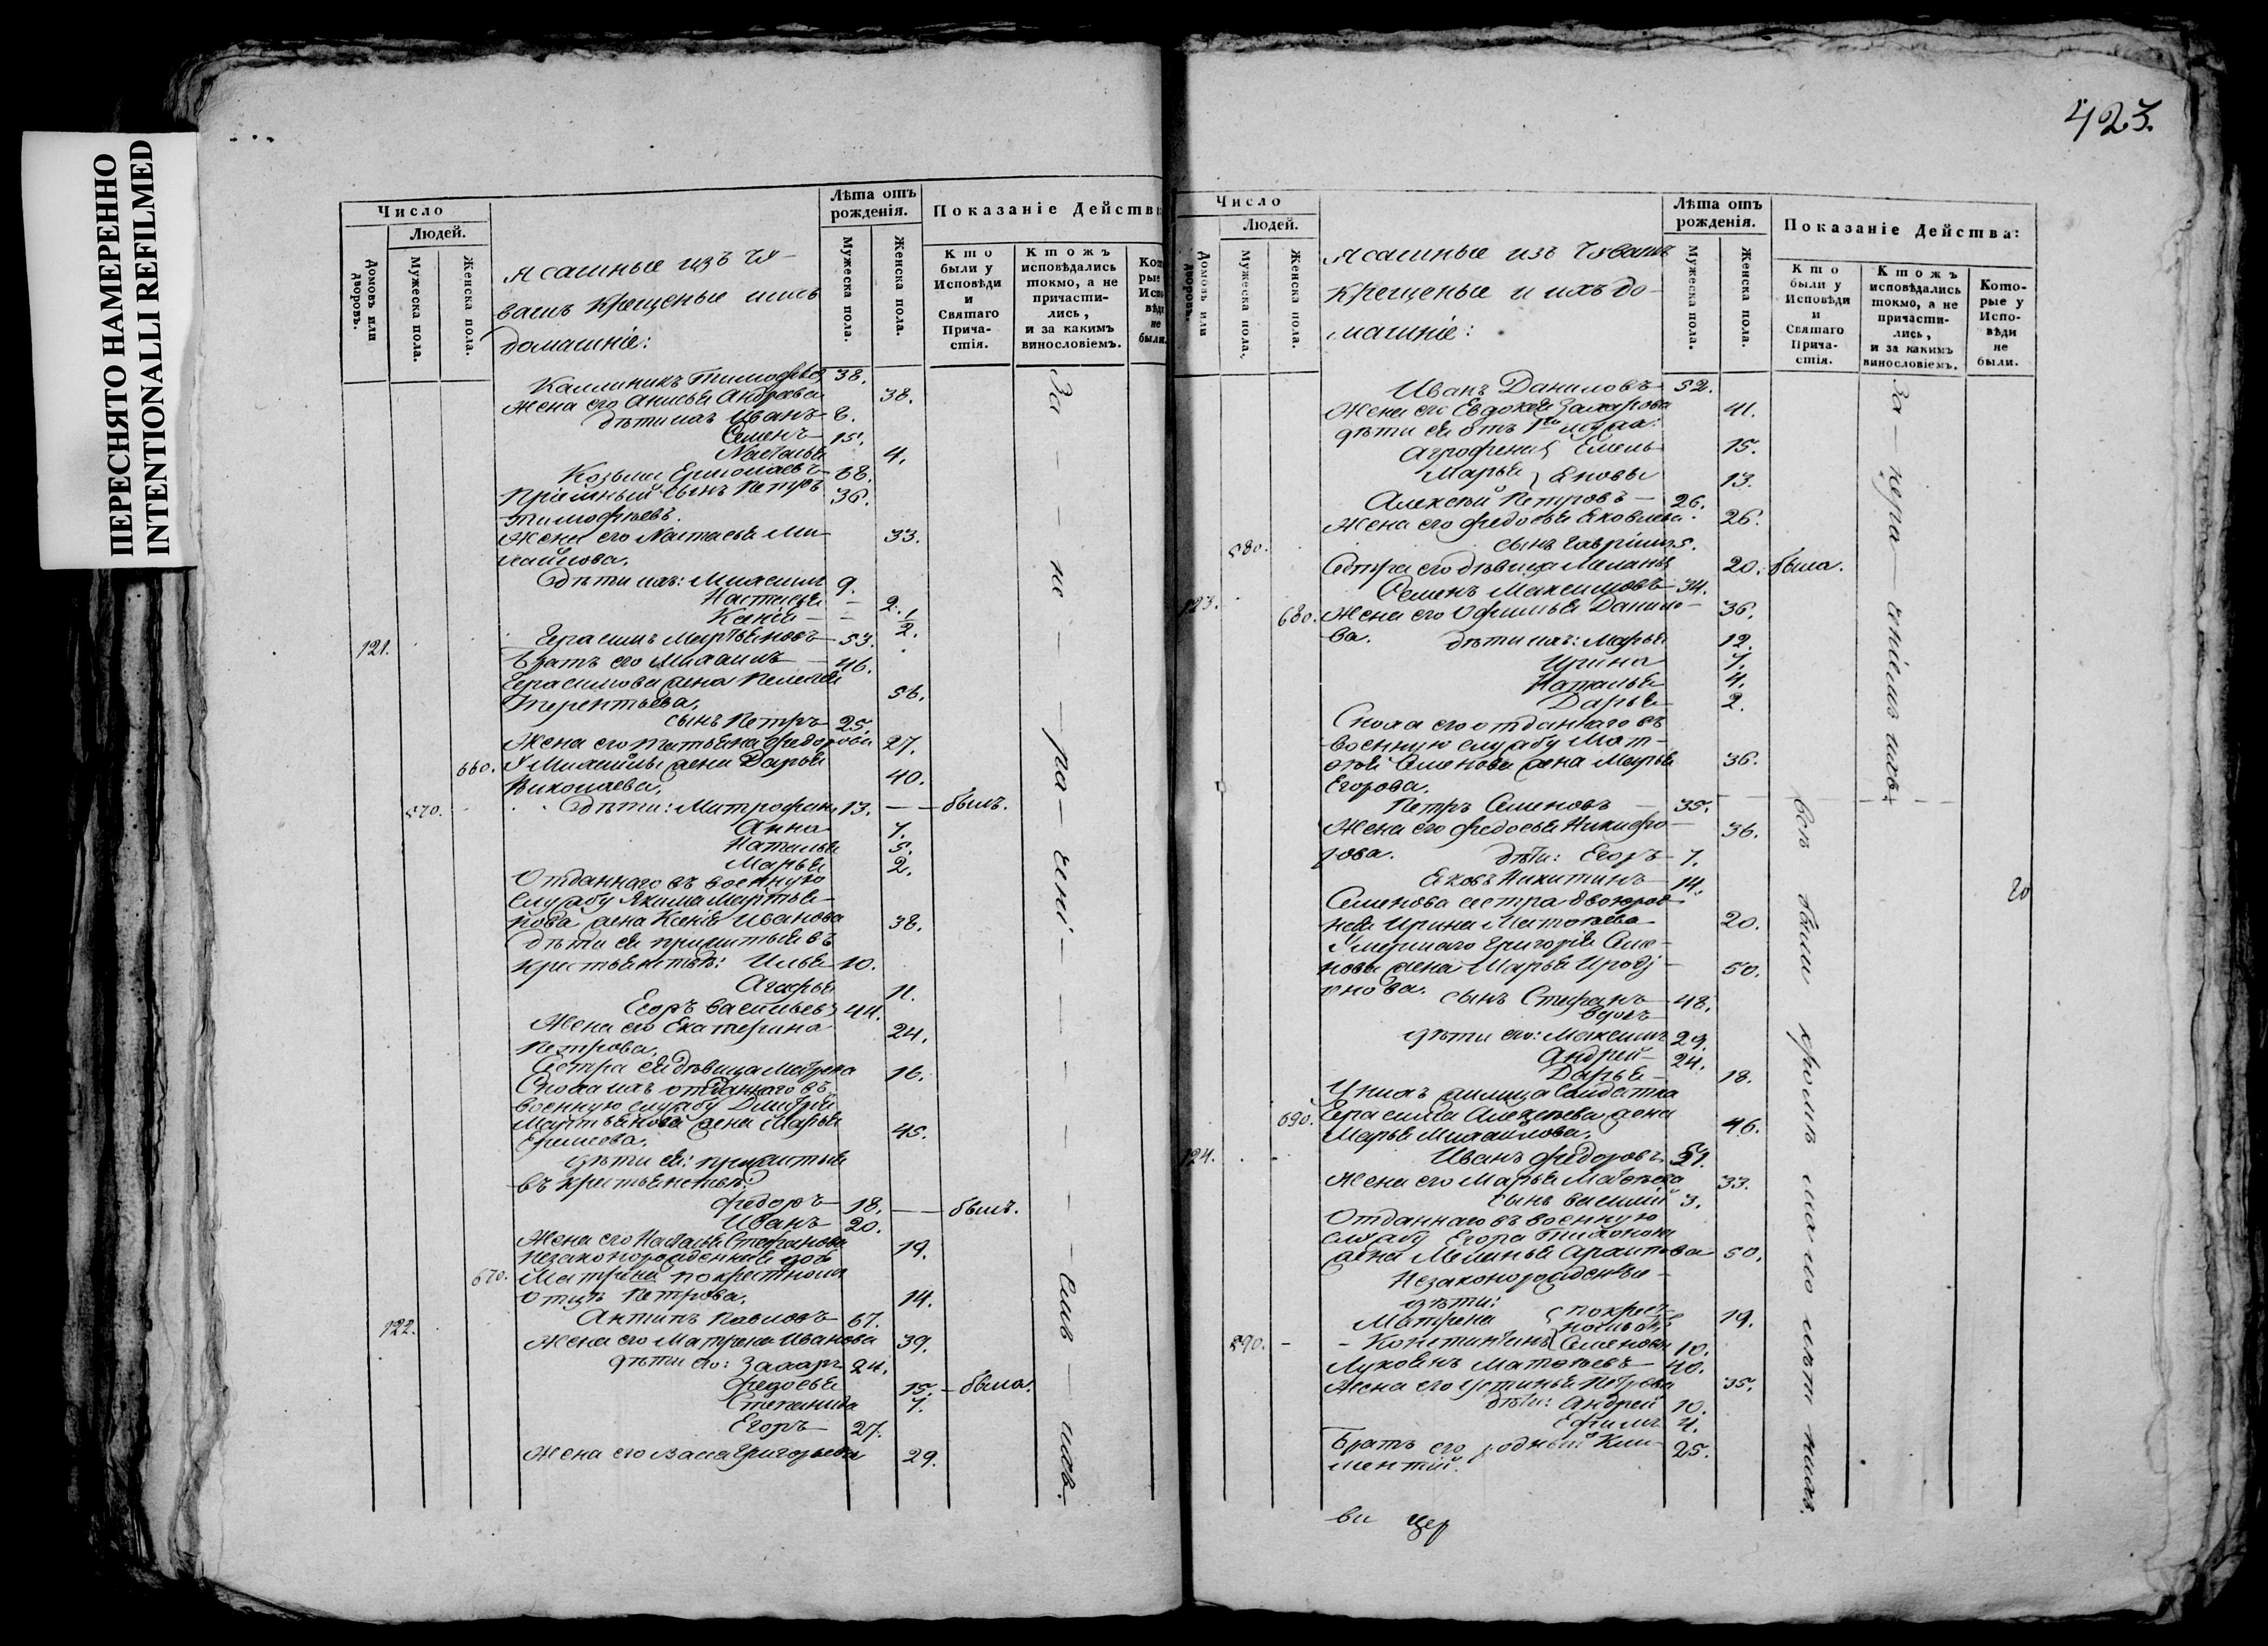 ПЕРЕСНЯТО НАМЕРЕННО
INTENTIONALLI REFILMED
Число
Людей.
Домовъ или дворовъ.
Мужеска пола.
Женска пола.
Ясашные изъ чу-
вашъ крещеные и ихъ
домашніе:
Лѣта отъ рожденія.
Мужеска пола.
Женска пола.
Показаніе Действ
Кто были у Исповѣди и Святаго Причастія.
Ктожъ исповѣдались токмо, а не причастились, и за какимъ винословіемъ.
Кот
рые
Исп
вѣд
не
были
Каллиникъ Тимофѣевъ 38.
Жена его Анисья 38.
дѣти ихъ Иванъ 6.
Семенъ 15.
Наталья 4.
Козьма Ермолаевъ 68.
Пріемный сынъ Петръ 36.
Тимофѣевъ.
Жена его Настасья Ми- 33.
хайлова.
дѣти ихъ: Максимъ 9.
Настасья 2.
Ксенія 1/2.
121. Герасимъ Мартьяновъ 53.
Братъ его Михаилъ 46.
Герасимова жена Пелагея 56.
Терентьева.
сынъ Петръ 25.
Жена его Татьяна Федорова 27.
660. У Михайлы жена Дарья 40.
Николаева.
570. дѣти: Митрофанъ 13. — былъ.
Анна 7.
Наталья 5.
Марья 2.
Отданнаго въ военную
службу Якима Мартья-
нова жена Ксенія Иванова 38.
дѣти ея прижитыя въ
крестьянствѣ: Илья 10.
Агафья 11.
Егоръ Васильевъ 44.
Жена его Екатерина 24.
Петрова.
Сестра ея дѣвица Матрена 16.
Сноха ихъ отданнаго въ
военную службу Дмитрія
Мартьянова жена Марья 45.
Еремеева.
дѣти ея: прижитыя
въ крестьянствѣ:
Федоръ 18. — былъ.
Иванъ 20.
Жена его Наталья Стефанова 19.
Незаконорожденная дочь
670. Матрена по крестному
отцѣ Петрова. 14.
122. Антипъ Павловъ 67.
Жена его Матрена Иванова 39.
дѣти его: Захаръ 24.
Федосья 15. — была.
Степанида 7.
Егоръ 27.
Жена его Васса Григорьева 29.
За — не — ра — чені — емъ — ихъ.
423.
Число
Людей.
Домовъ или дворовъ.
Мужеска пола.
Женска пола.
Ясашные изъ Чувашъ
крещеные и ихъ до-
машніе:
Лѣта отъ рожденія.
Мужеска пола.
Женска пола.
Показаніе Действа:
Кто были у Исповѣди и Святаго Причастія.
Ктожъ исповѣдались токмо, а не причастились, и за какимъ винословіемъ.
Которые у Исповѣди не были.
Иванъ Даниловъ 52.
Жена его Евдокея Захарова 41.
дѣти ея отъ 1го мужа:
Агрофена Емель- 15.
Марья яновы 13.
Алексѣй Петровъ 26.
Жена его Федосья Яковлева 26.
580. сынъ Гавріилъ 5.
Сестра его дѣвица Меланья 20. была.
123. Семенъ Максимовъ 34.
680. Жена его Офимья Данило- 36.
ва. дѣти ихъ: Марья 12.
Ирина 7.
Наталья 4.
Дарья 2.
Сноха его отданнаго въ
военную службу Мат-
ѳея Семенова жена Марья 36.
Егорова.
Петръ Семеновъ 35.
Жена его Федосья Никифо- 36.
рова. дѣти: Егоръ 7.
Яковъ Никитинъ 14.
Семенова сестра двоюрод-
ная Ирина Матвѣева 20.
Умершаго Григорія Семе-
новы жена Марья Ироді- 50.
онова. сынъ Стефанъ 48.
вдовъ
дѣти его: Максимъ 29.
Андрей 24.
Дарья 18.
У нихъ жилица Солдатка
690. Герасима Алексѣева жена
Марья Михайлова. 46.
124. Иванъ Федоровъ 51.
Жена его Марья Матвѣева 33.
сынъ Василій 3.
Отданнаго въ военную
службу Егора Тихонова
жена Меланья Архипова 50.
Незаконорожденные
дѣти:
Матрена по крест- 19.
590. Константинъ Семеновы 10.
Лукоянъ Матвѣевъ 40.
Жена его Устинья Петрова 35.
дѣти: Андрей 10.
Ефимъ 4.
Братъ его родный Кли- 25.
ментій.
За — нера — ченіемъ ихъ.
всѣ были кромѣ малолѣтнихъ.
20